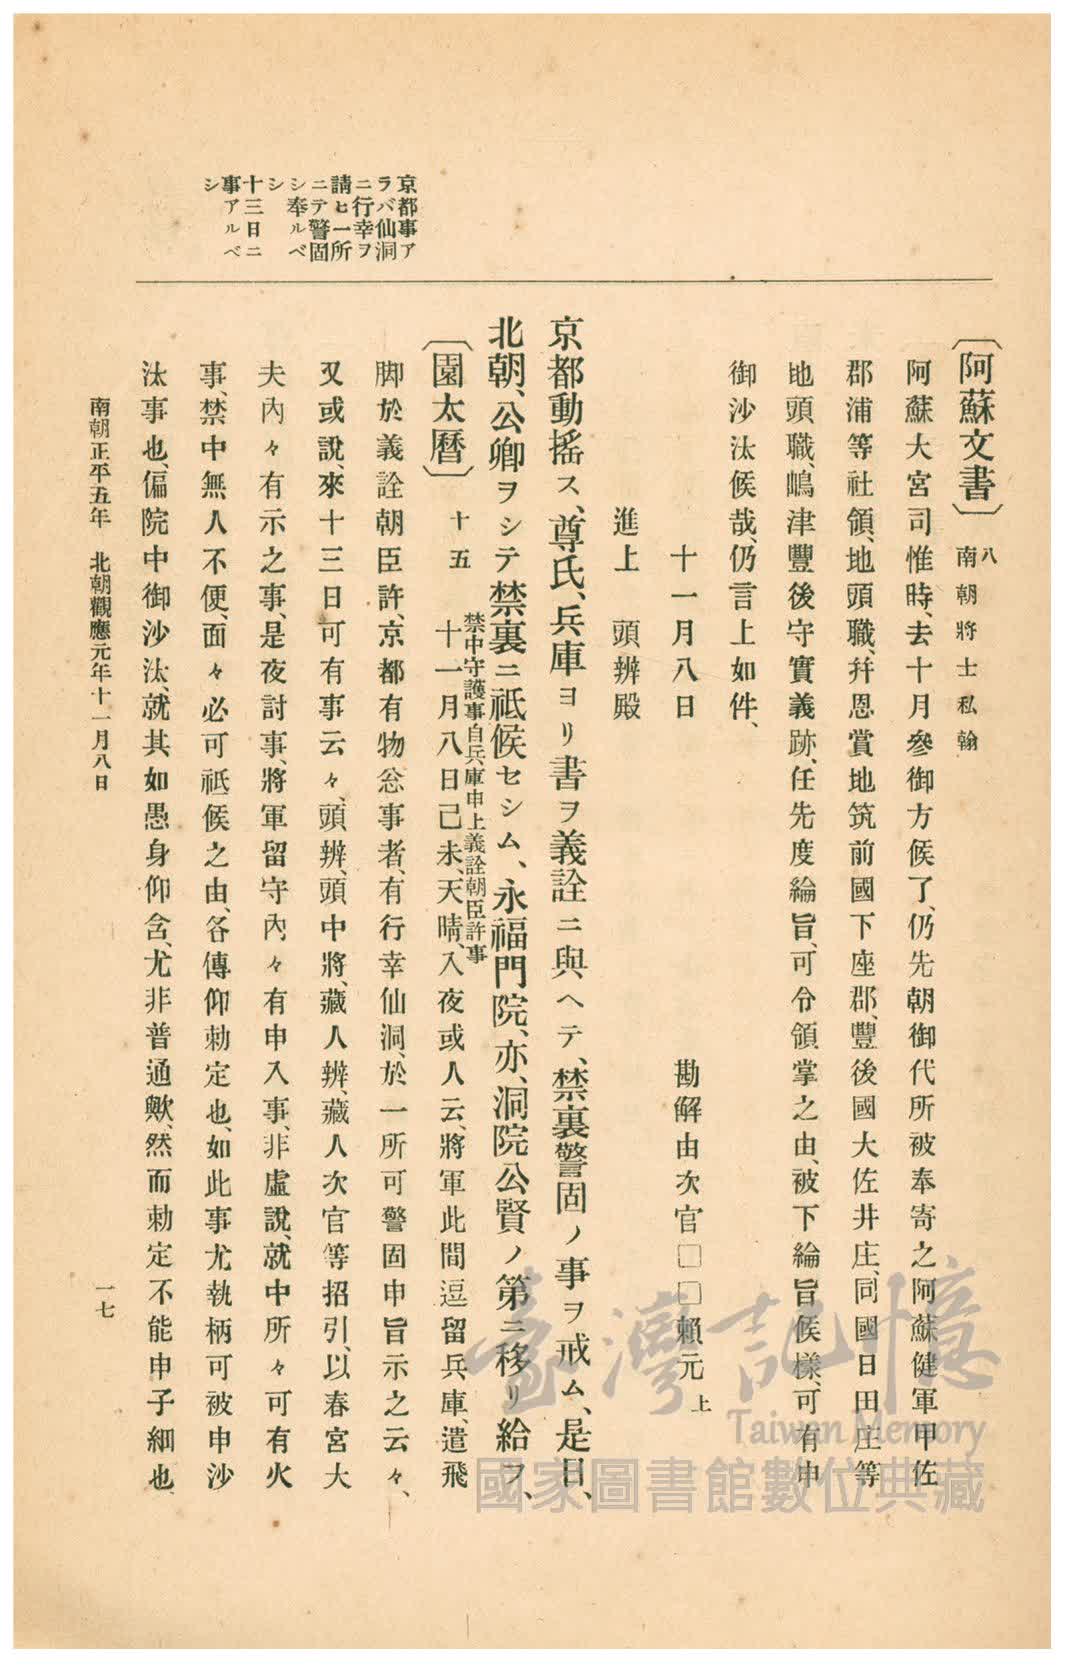 京都事ア
ラバ仙洞
ニ行幸ヲ
請ヒ一所
ニテ警固
シ奉ルベ
シ
十三日ニ
事アルベ
シ
〔阿蘇文書〕八南朝將士私翰
阿蘇大宮司惟時、去十月參御方候了、仍先朝御代所被奉寄之阿蘇健軍甲佐
郡浦等社領、地頭職、幷恩賞地筑前國下座郡、豐後國大佐井庄、同國日田庄等
地頭職、嶋津豐後守實義跡、任先度綸旨、可令領掌之由、被下綸旨候樣、可有申
御沙汰候哉、仍言上如件、
十一月八日 勘解由次官□□賴元上
進上 頭辨殿
京都動搖ス、尊氏、兵庫ヨリ書ヲ義詮ニ與ヘテ、禁裏警固ノ事ヲ戒ム、是日、
北朝、公卿ヲシテ禁裏ニ祗候セシム、永福門院、亦、洞院公賢ノ第ニ移リ給フ、
〔園太曆〕十五 禁中守護事自兵庫申上義詮朝臣許事
十一月八日己未、天晴、入夜或人云、將軍此間逗留兵庫、遣飛
脚於義詮朝臣許、京都有物忩事者、有行幸仙洞、於一所可警固申旨示之云々、
又或說、來十三日可有事云々、頭辨、頭中將、藏人辨、藏人次官等招引、以春宮大
夫內々有示之事、是夜討事、將軍留守內々有申入事、非虛說、就中所々可有火
事、禁中無人不便、面々必可祗候之由、各傳仰勅定也、如此事尤執柄可被申沙
汰事也、偏院中御沙汰、就其如愚身仰含、尤非普通歟、然而勅定不能申子細也、
南朝正平五年 北朝觀應元年十一月八日
一七
臺灣記憶
Taiwan Memory
國家圖書館數位典藏